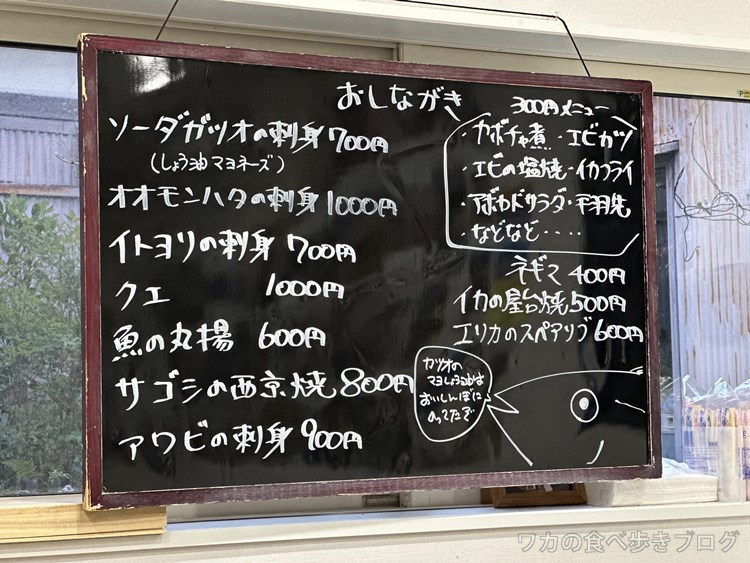 おしながき
ソーダガツオの刺身 700円
(しょう油マヨネーズ)
オオモンハタの刺身 1000円
イトヨリの刺身 700円
クエ 1000円
魚の丸揚 600円
サゴシの西京焼 800円
アワビの刺身 900円
300円メニュー
・カボチャ煮・エビカツ
・エビの塩焼・イカフライ
・アボカドサラダ・手羽先
・などなど・・・・
ネギマ 400円
イカの屋台焼 500円
エリカのスペアリブ 600円
カツオの
マヨしょう油は
おいしんぼに
のってたぞ
ワカの食べ歩きブログ